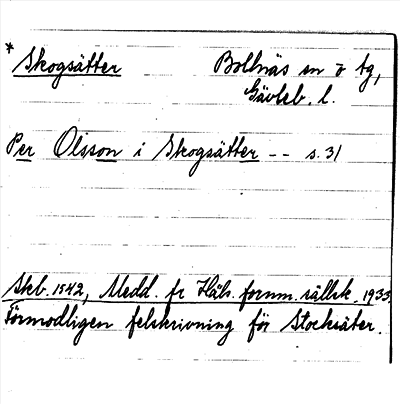 * Skogsätter Bollnäs sn o tg,
Gävleb. l.
Per Olsson i Skogsätter -- s. 31
Skb. 1542, Medd. fr Häls. fornm. sällsk. 1933
Förmodligen felskrivning för Stocksäter.